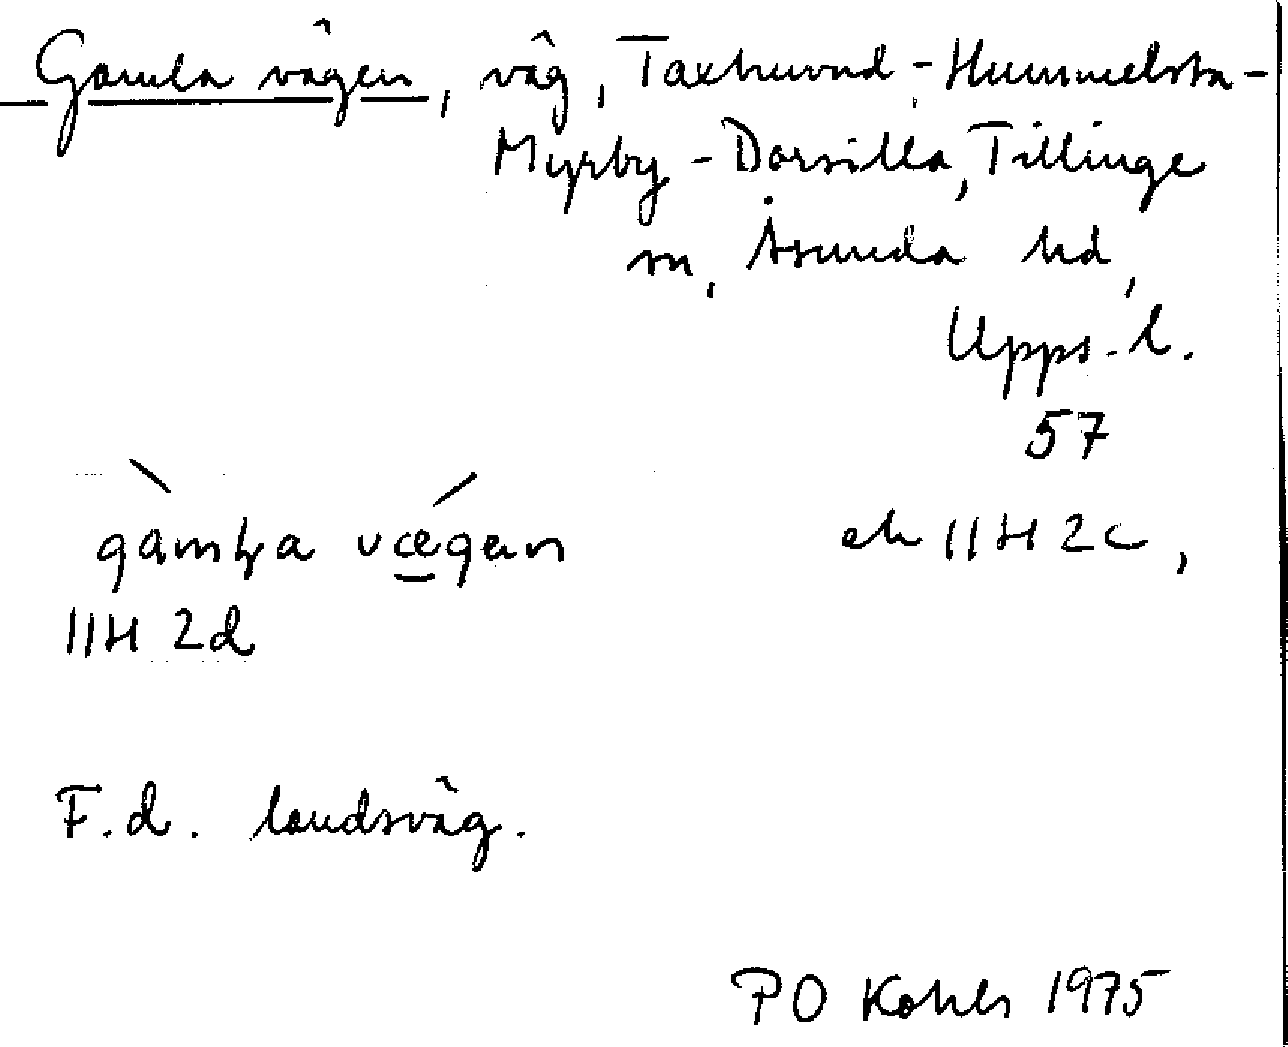 Gamla vägen, väg, Taxhuvud - Hummelsta -
Myrby - Dorsilla, Tillinge
sn, Åsunda hd,
Upps. l.
57
gàmḷa vǽgen ek 11H 2c,
11H 2d
F.d. landsväg.
PO Kohls 1975